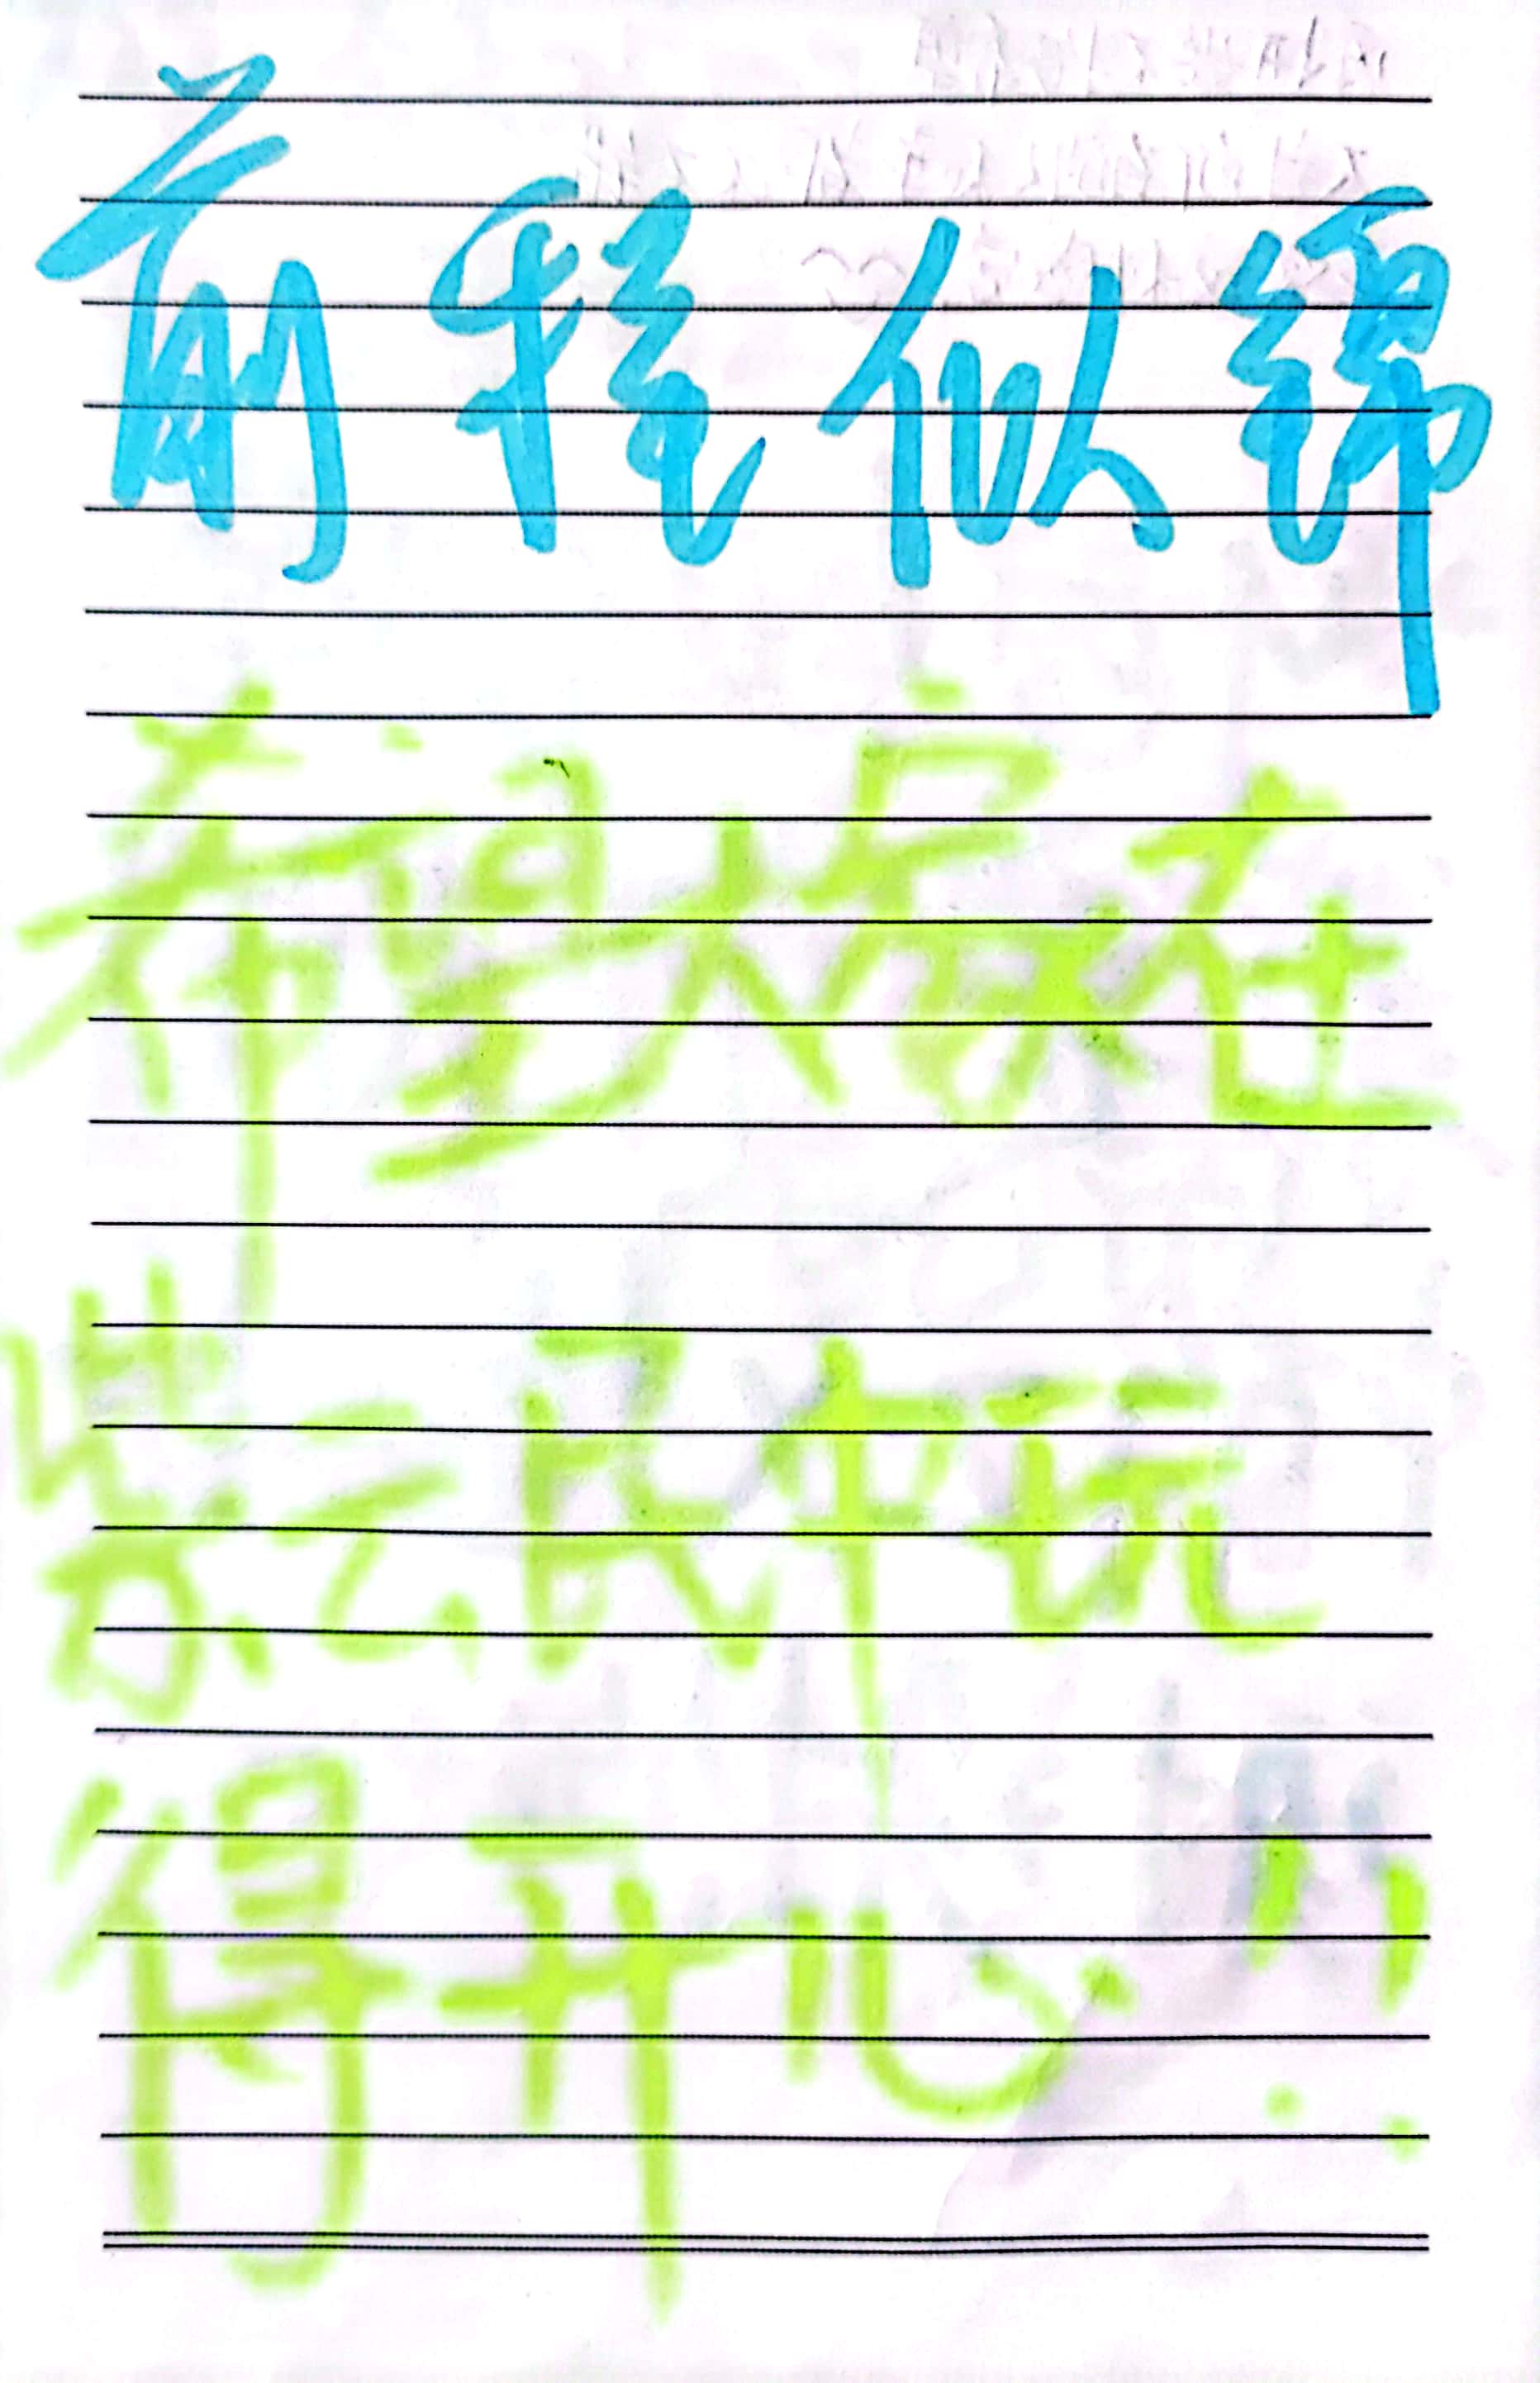 前程似锦
希望大家在
岁云民中玩
得开心!!